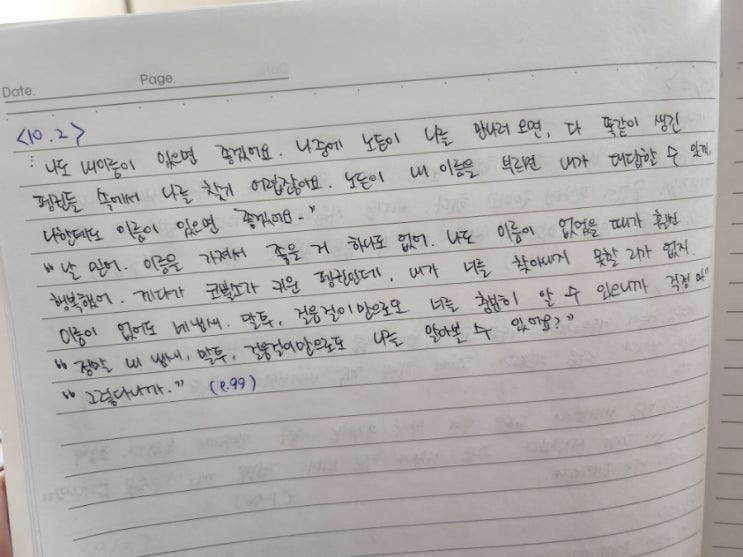 Date. Page.
<10.2>
"나도 내 이름이 있으면 좋겠어요. 나중에 노든이 나를 만나러 오면, 다 똑같이 생긴
펭귄들 속에서 나를 찾기 어렵잖아요. 노든이 내 이름을 부르면 내가 대답할 수 있게,
나한테도 이름이 있으면 좋겠어요."
"날 믿어. 이름을 가져서 좋을 거 하나도 없어. 나도 이름이 없었을 때가 훨씬
행복했어. 게다가 코뿔소가 키운 펭귄인데, 내가 너를 찾아내지 못할 리가 없지.
이름이 없어도 네 냄새, 말투, 걸음걸이만으로도 너를 충분히 알 수 있으니까 걱정 마"
"정말 내 냄새, 말투, 걸음걸이만으로도 나를 알아볼 수 있어요?"
"그렇다니까." (p.99)